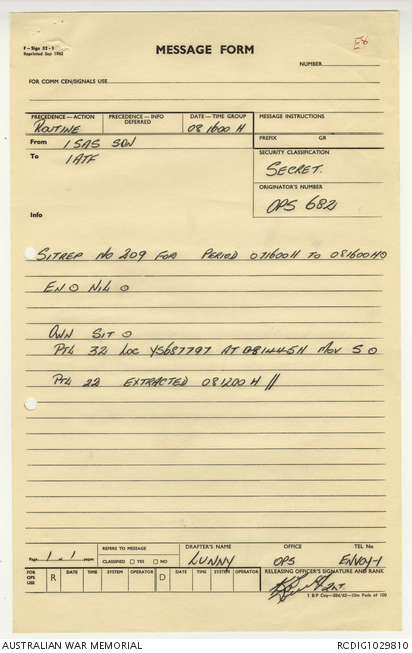 F - Sigs 52 - 1
Reprinted Sep 1962
MESSAGE FORM
E6
NUMBER
FOR COMM CEN/SIGNALS USE
PRECEDENCE—ACTION
ROUTINE
PRECEDENCE—INFO
DEFERRED
DATE—TIME GROUP
081600 H
MESSAGE INSTRUCTIONS
PREFIX GR
From 1 SAS SQN
To 1 ATF
SECURITY CLASSIFICATION
SECRET.
ORIGINATOR'S NUMBER
OPS 682
Info
SITREP NO 209 FOR PERIOD 071600H TO 081600H O
EN O NIL O
OWN SIT O
PTL 32 LOC YS687797 AT 081445H MOV S O
PTL 22 EXTRACTED 081200 H //
Page 1 of 1 pages
REFERS TO MESSAGE
CLASSIFIED YES NO
DRAFTER'S NAME
LUNNY
OFFICE
OPS
TEL No
ENVOY-1
FOR OPS USE
R DATE TIME SYSTEM OPERATOR D DATE TIME SYSTEM OPERATOR
RELEASING OFFICER'S SIGNATURE AND RANK
AUSTRALIAN WAR MEMORIAL
RCDIG1029810